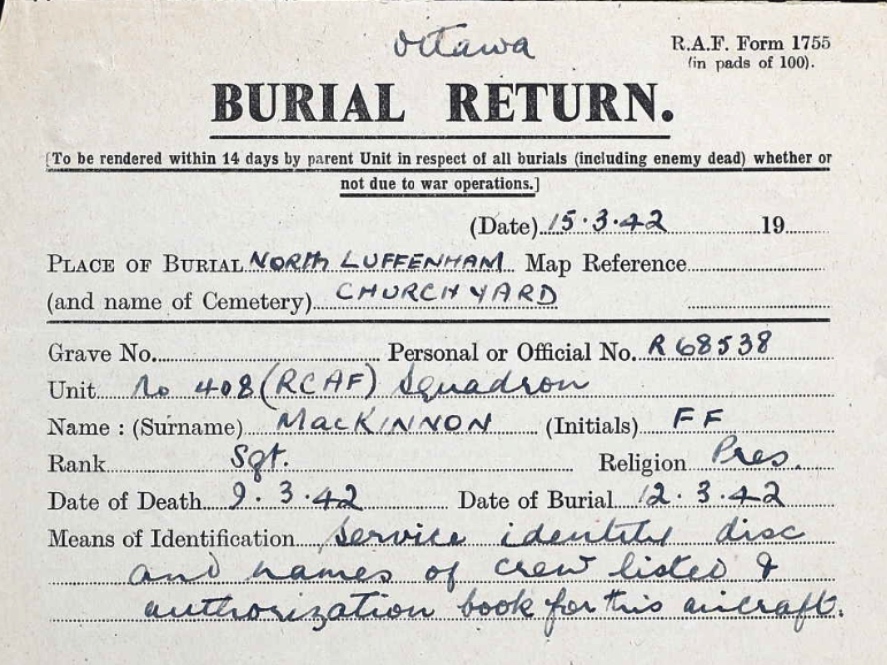 Ottawa
R.A.F. Form 1755
(in pads of 100).
BURIAL RETURN.
[To be rendered within 14 days by parent Unit in respect of all burials (including enemy dead) whether or
not due to war operations.]
(Date) 15.3.42 19
PLACE OF BURIAL NORTH LUFFENHAM Map Reference
(and name of Cemetery) CHURCHYARD
Grave No. Personal or Official No. R 68538
Unit No 408 (RCAF) Squadron
Name : (Surname) MacKINNON (Initials) F F
Rank Sgt. Religion Pres.
Date of Death 9.3.42 Date of Burial 12.3.42
Means of Identification Service identity disc
and names of crew listed &
authorization book for this aircraft.